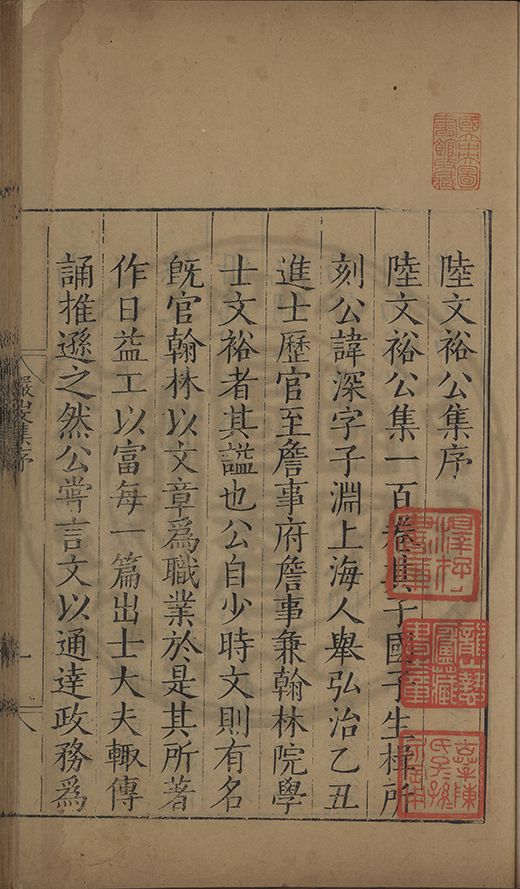 陸文裕公集序
陸文裕公集一百卷其子國子生楫所
刻公諱深字子淵上海人舉弘治乙丑
進士歷官至詹事府詹事兼翰林院學
士文裕者其謚也公自少時文則有名
既官翰林以文章爲職業於是其所著
作日益工以富每一篇出士大夫輙傳
誦推遜之然公嘗言文以通達政務爲
儼山集序
一
國立中央圖書館收藏
澤存書庫